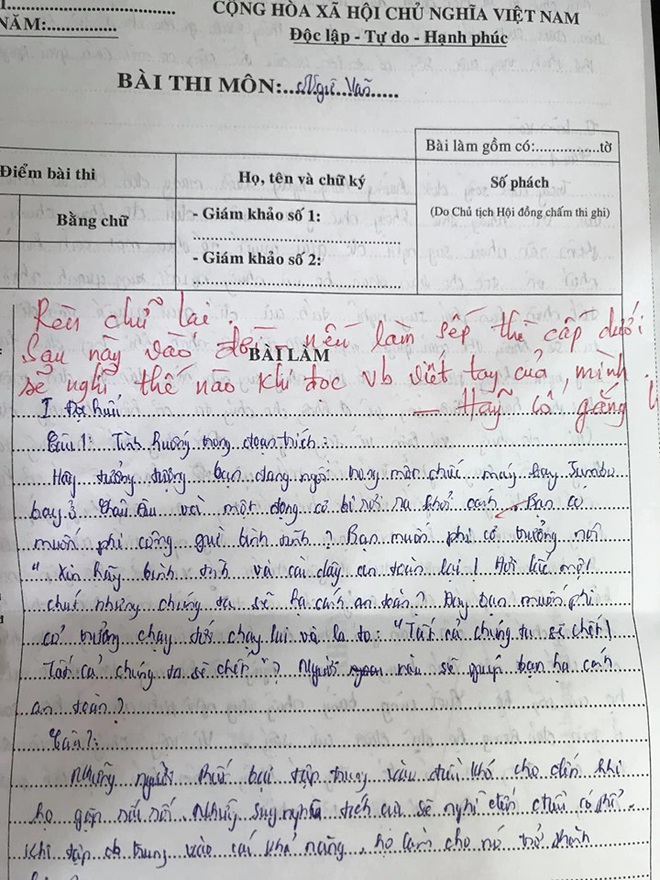 CỘNG HÒA XÃ HỘI CHỦ NGHĨA VIỆT NAM
NĂM:...............
Độc lập - Tự do - Hạnh phúc
BÀI THI MÔN:..Ngữ Văn.....
Bài làm gồm có:...............tờ
Điểm bài thi
Họ, tên và chữ ký
Số phách
Bằng chữ
- Giám khảo số 1:
(Do Chủ tịch Hội đồng chấm thi ghi)
- Giám khảo số 2:
Rèn chữ lại
Sau này vào đời nếu làm sếp thì cấp dưới
BÀI LÀM
sẽ nghĩ thế nào khi đọc vb viết tay của mình
— Hãy cố gắng
I. Đọc hiểu
Câu 1: Tình huống trong đoạn trích:
Hãy tưởng tượng bạn đang ngồi trong một chiếc máy bay Jumbo
bay ở và một động cơ bị rơi ra khỏi cánh. Bạn có
muốn phi công bình tĩnh? Bạn muốn phi cơ trưởng nói
" Xin hãy bình tĩnh và cài dây an toàn lại! Hơi lúc một
chút nhưng chúng ta sẽ hạ cánh an toàn? Hay bạn muốn phi
cơ trưởng chạy tới chạy lui và la to: "Tất cả chúng ta sẽ chết!
Tất cả chúng ta sẽ chết"? Người nào sẽ giúp bạn hạ cánh
an toàn?
Câu 2:
Những người thất bại tập trung vào khó cho đến khi
họ gặp những suy nghĩ tích cực sẽ nghĩ đến có thể.
Khi tập trung vào cái khả năng, họ làm cho nó trở thành